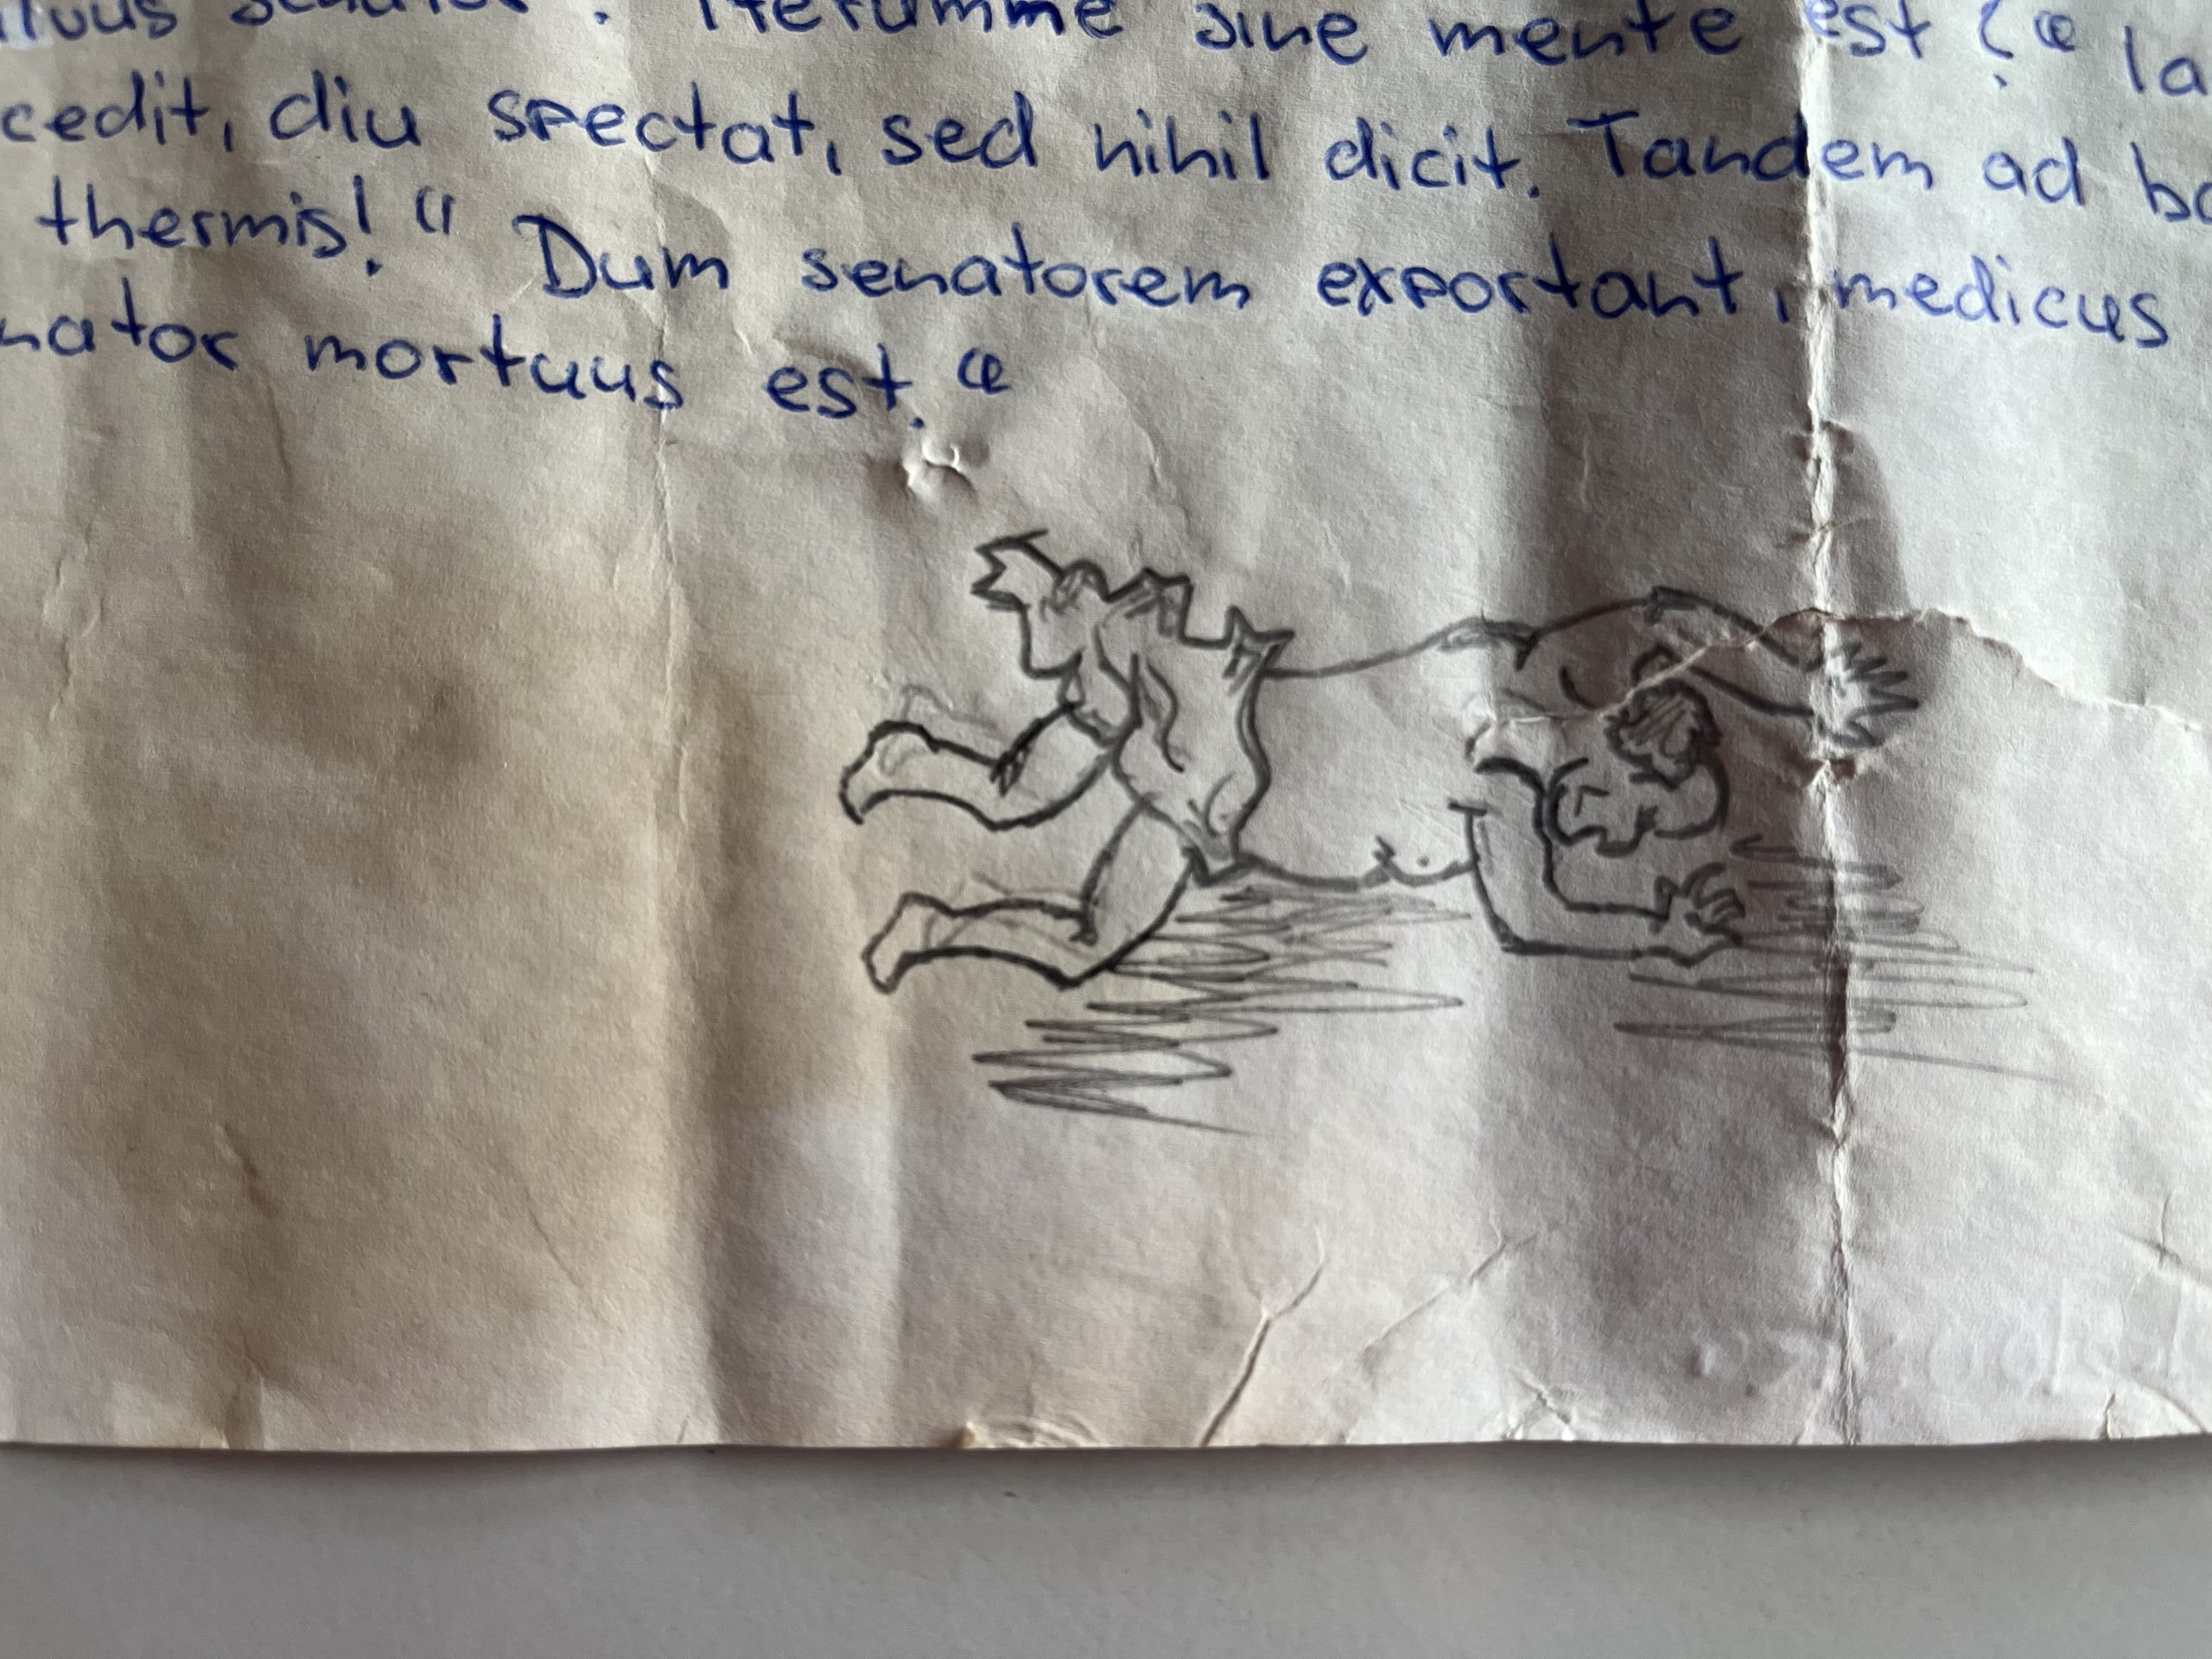 senator". Iterumne sine mente est?"
cedit, diu spectat, sed nihil dicit. Tandem ad
thermis!" Dum senatorem exportant, medicus
nator mortuus est."